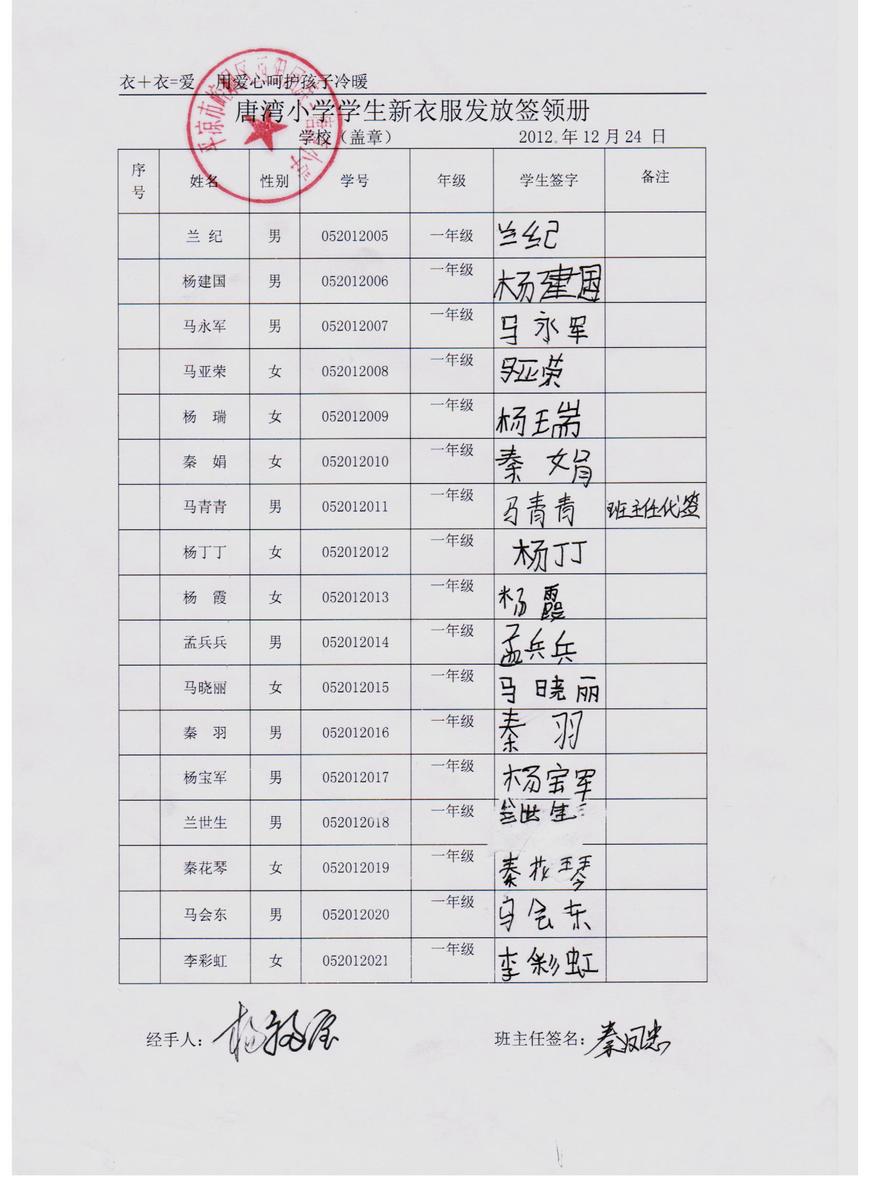 衣＋衣=爱 用爱心呵护孩子冷暖
唐湾小学学生新衣服发放签领册
学校（盖章） 2012. 年 12 月 24 日
序号 姓名 性别 学号 年级 学生签字 备注
兰 纪 男 052012005 一年级 兰纪
杨建国 男 052012006 一年级 杨建国
马永军 男 052012007 一年级 马永军
马亚荣 女 052012008 一年级 马亚荣
杨 瑞 女 052012009 一年级 杨瑞
秦 娟 女 052012010 一年级 秦 娟
马青青 男 052012011 一年级 马青青 班主任代签
杨丁丁 女 052012012 一年级 杨丁丁
杨 霞 女 052012013 一年级 杨霞
孟兵兵 男 052012014 一年级 孟兵兵
马晓丽 女 052012015 一年级 马晓丽
秦 羽 男 052012016 一年级 秦 羽
杨宝军 男 052012017 一年级 杨宝军
兰世生 男 052012018 一年级 兰世生
秦花琴 女 052012019 一年级 秦花琴
马会东 男 052012020 一年级 马会东
李彩虹 女 052012021 一年级 李彩虹
经手人： 班主任签名：秦凤忠